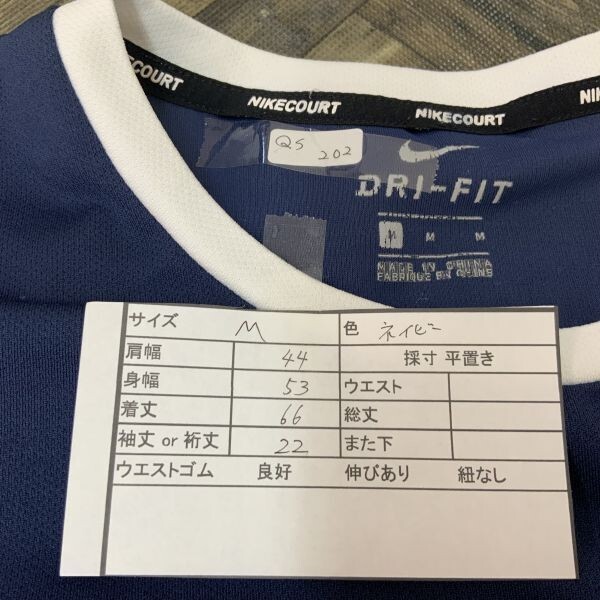 NIKECOURT
NIKECOURT
NIKECOURT
NI
QS 202
DRI-FIT
M M M
MADE IN CHINA
FABRIQUE EN CHINE
サイズ M 色 ネイビー
肩幅 44 採寸 平置き
身幅 53 ウエスト
着丈 66 総丈
袖丈 or 裄丈 22 また下
ウエストゴム 良好 伸びあり 紐なし